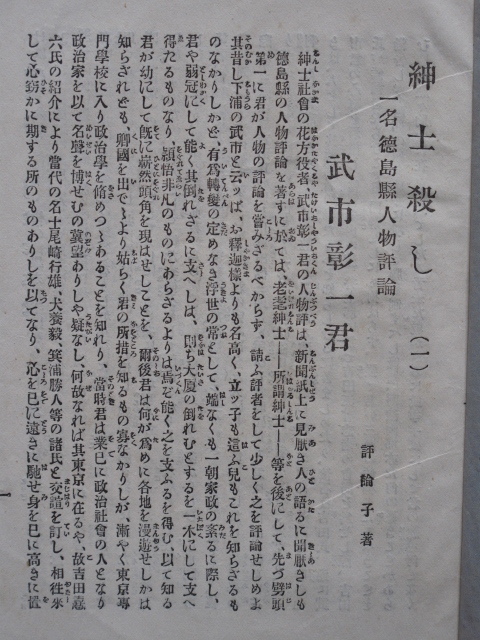 紳士殺し（一）
一名徳島縣人物評論
評論子著
武市彰一君
紳士社會の花方役者、武市彰一君の人物評は、新聞紙上に見厭き人の語るに聞厭しも
徳島縣の人物評論を著すに於ては、老耄紳士――所謂紳士――等を後にして、先づ劈頭
第一に君が人物の評論を甞みざるべからず、請ふ評者をして少しく之を評論せしめよ
其昔し下浦の武市と云ッぱ、お釋迦樣よりも名高く、立ッ子も這ふ兒もこれを知らざるも
のなかりしかど、有爲轉變の定めなき浮世の常として、端なくも一朝家政の紊るに際し、
君や弱冠にして能く其倒れざるに支へしは、則ち大厦の倒れむとするを一木にして支へ
得たるものなり、穎悟非凡のものにあらざるよりは焉ぞ能く之を支ふるを得む、以て知る
君が幼にして既に嶄然頭角を現はせしことを、爾後君は何が爲めに各地を漫遊せしかは
知らざれども、郷國を出でゝより姑らく君の所措を知るもの尠なかりしが、漸やく東京專
門學校に入り政治學を脩めつゝあることを知れり、當時君は業已に政治社會の人となり
政治家を以て名聲を博せむの冀望ありしや疑なし、何故なれば其東京に在るや、故吉田熹
六氏の紹介により當代の名士尾崎行雄、犬養毅、箕浦勝人等の諸氏と交誼を訂し、相徃來
して心竊かに期する所のものありしを以てなり、心を已に遠きに馳せ身を已に高きに置
一